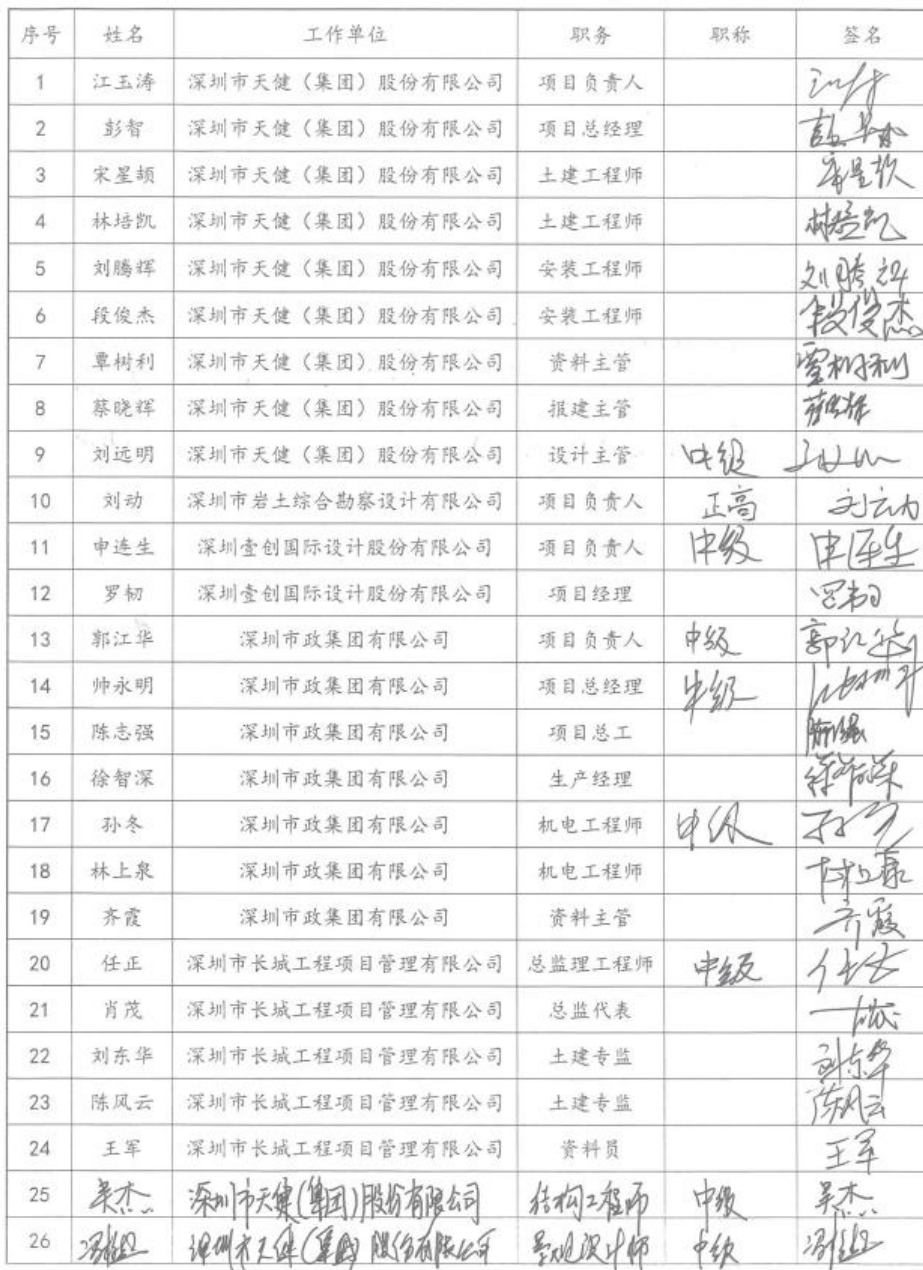 序号 姓名 工作单位 职务 职称 签名
1 江玉涛 深圳市天健（集团）股份有限公司 项目负责人
2 彭智 深圳市天健（集团）股份有限公司 项目总经理
3 宋星颉 深圳市天健（集团）股份有限公司 土建工程师
4 林培凯 深圳市天健（集团）股份有限公司 土建工程师 林培凯
5 刘腾辉 深圳市天健（集团）股份有限公司 安装工程师 刘腾辉
6 段俊杰 深圳市天健（集团）股份有限公司 安装工程师 段俊杰
7 覃树利 深圳市天健（集团）股份有限公司 资料主管 覃树利
8 蔡晓辉 深圳市天健（集团）股份有限公司 报建主管 蔡晓辉
9 刘远明 深圳市天健（集团）股份有限公司 设计主管 中级
10 刘动 深圳市岩土综合勘察设计有限公司 项目负责人 正高 刘动
11 申连生 深圳壹创国际设计股份有限公司 项目负责人 中级 申连生
12 罗韧 深圳壹创国际设计股份有限公司 项目经理 罗韧
13 郭江华 深圳市政集团有限公司 项目负责人 中级 郭江华
14 帅永明 深圳市政集团有限公司 项目总经理 中级
15 陈志强 深圳市政集团有限公司 项目总工 陈志强
16 徐智深 深圳市政集团有限公司 生产经理 徐智深
17 孙冬 深圳市政集团有限公司 机电工程师 中级 孙冬
18 林上泉 深圳市政集团有限公司 机电工程师 林上泉
19 齐霞 深圳市政集团有限公司 资料主管 齐霞
20 任正 深圳市长城工程项目管理有限公司 总监理工程师 中级 任正
21 肖茂 深圳市长城工程项目管理有限公司 总监代表
22 刘东华 深圳市长城工程项目管理有限公司 土建专监 刘东华
23 陈风云 深圳市长城工程项目管理有限公司 土建专监 陈风云
24 王军 深圳市长城工程项目管理有限公司 资料员 王军
25 吴杰 深圳市天健(集团)股份有限公司 结构工程师 中级 吴杰
26 深圳市天健(集团)股份有限公司 景观设计师 中级